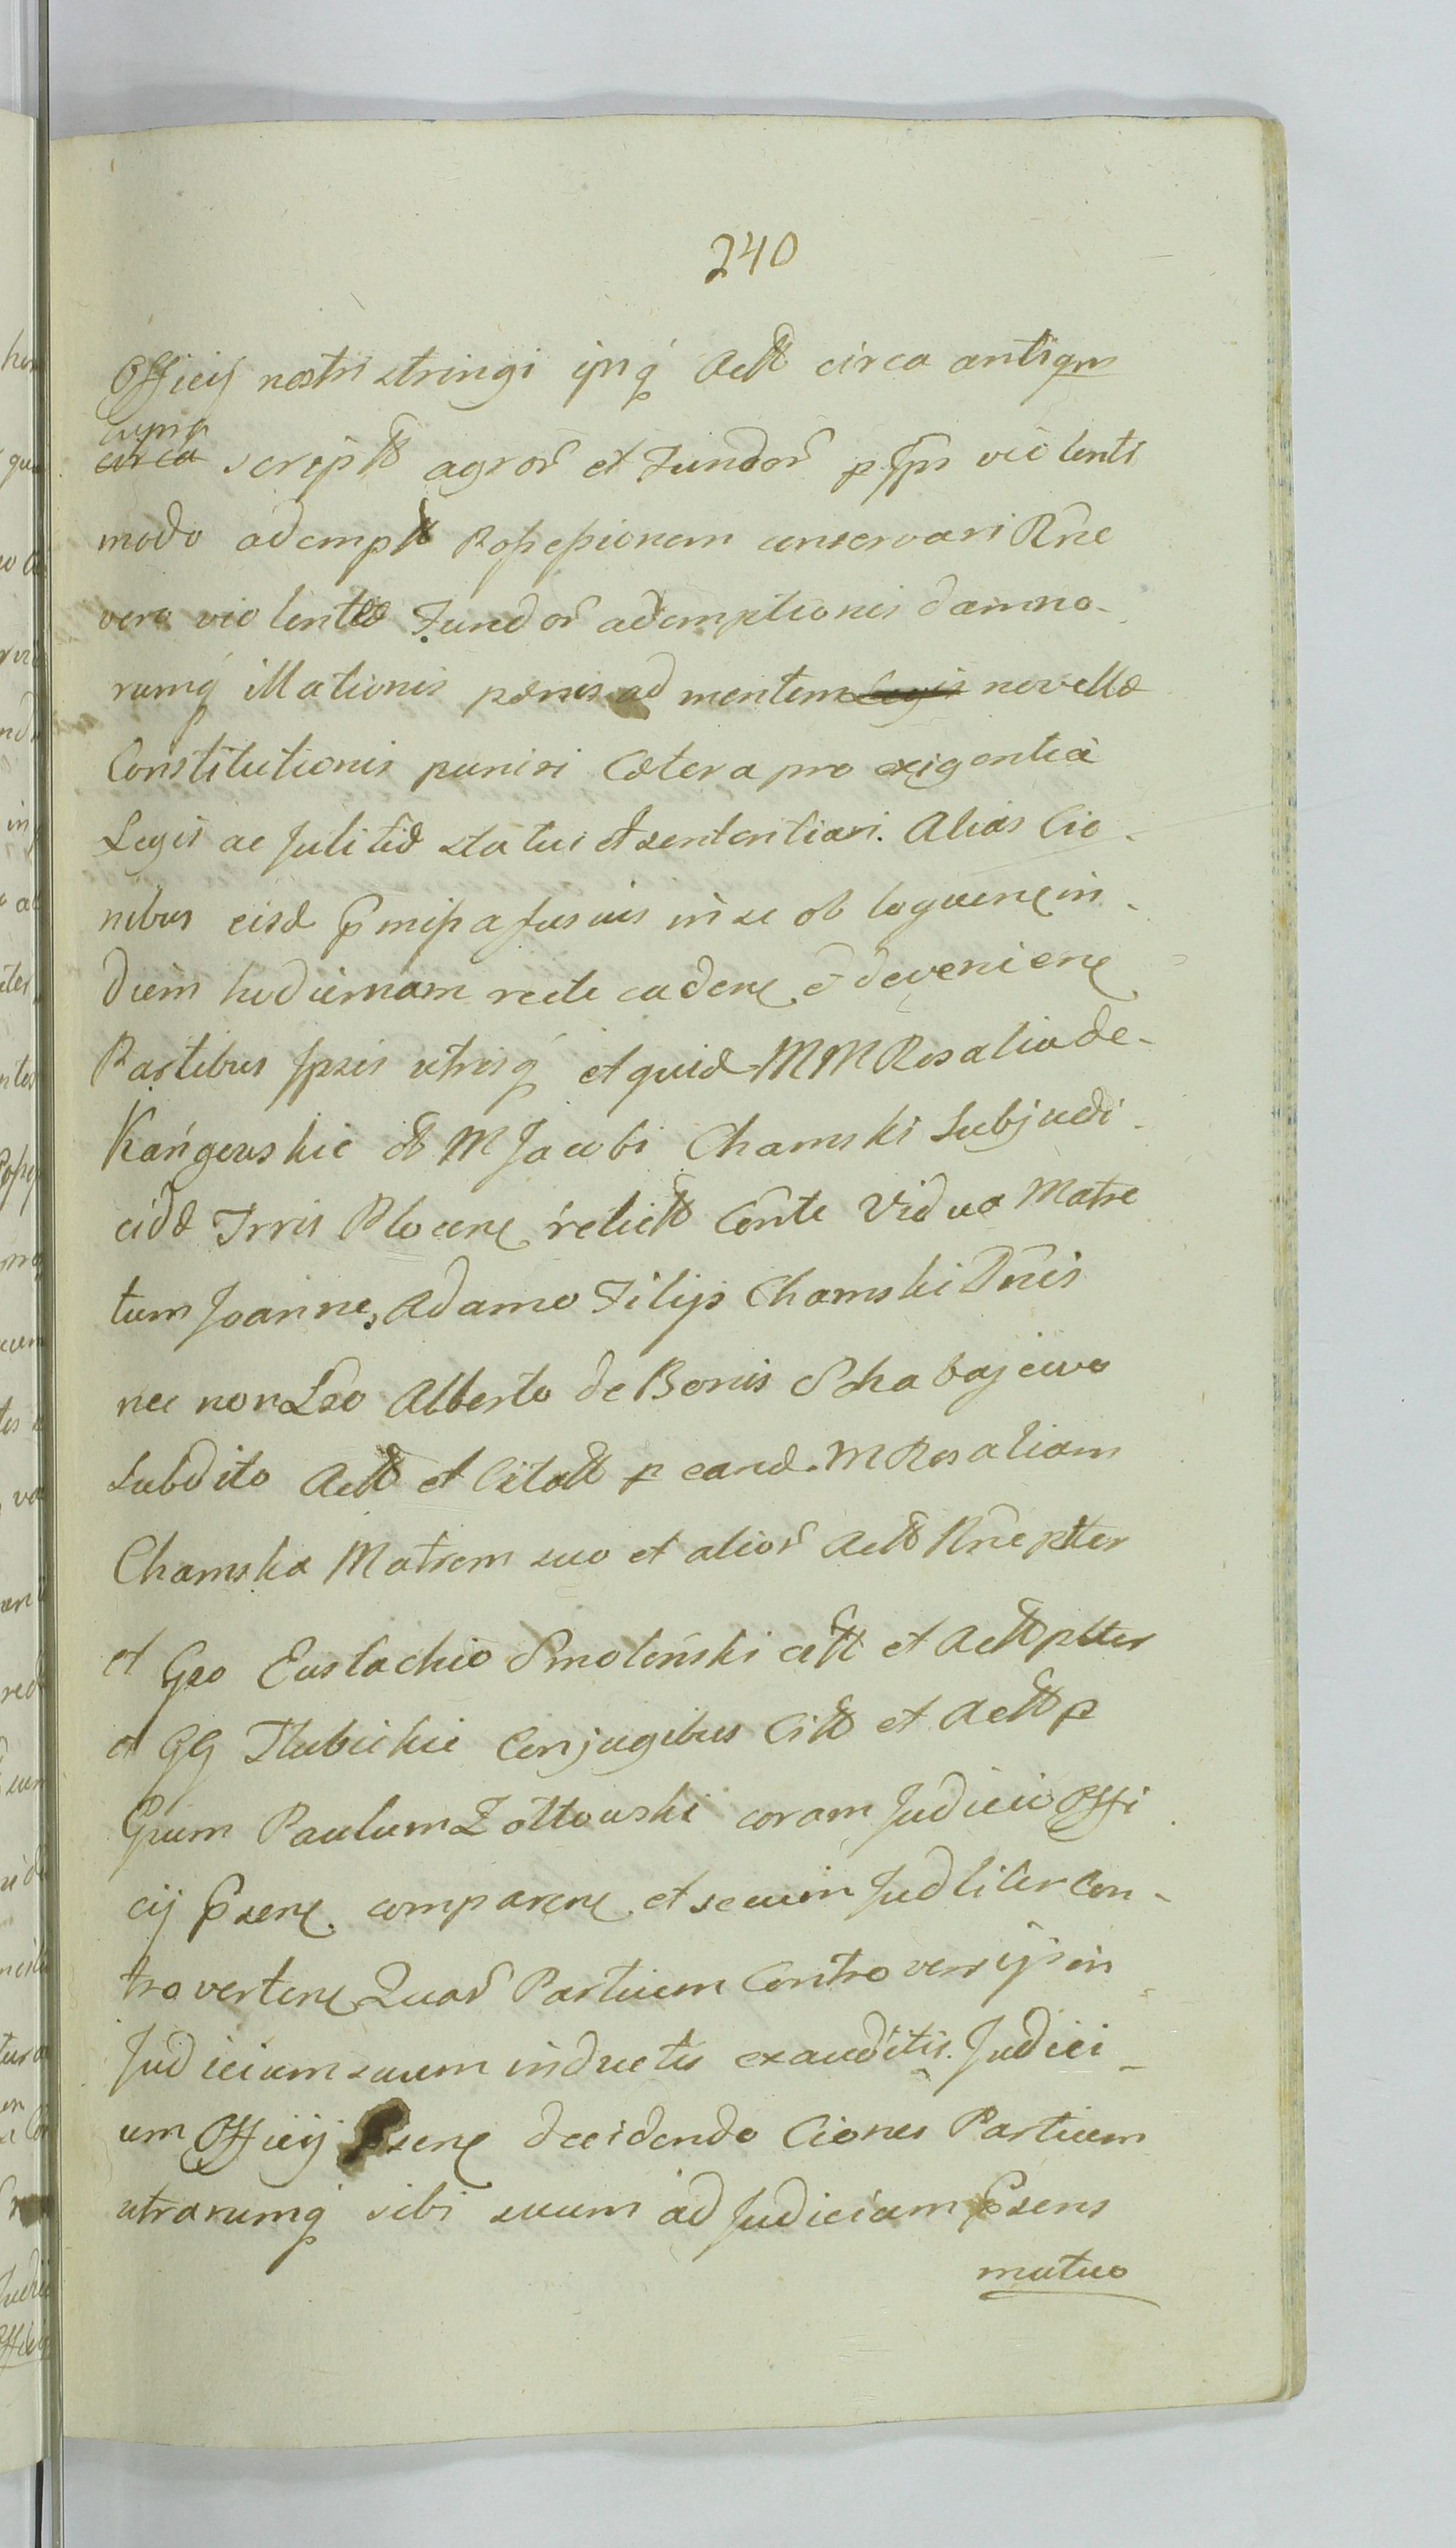 240
Officij nostri stringi ipsq́ Actt circa antiqm
supra
circa scriptt agror̃ et Fundor̃ p Ipm violenti
modo adempt Possessionem conservari Rne
vero violentæ Fundor̃ ademptionis damno-
rumq́ illationis pænis ad mentem Legis novellæ
Constitutionis puniri Cætera pro exigentia
Legis ac Justitiæ statui et sententiari. Alias Cio
nibus eisd præmissa fusius in se ob loquen in
diem hodiernam recte caden & devenien
Partibus Ipsis utrisq́ et quid MM Rosalia de
Kańgowskie M Jacobi Chamski Subjudi
cid Trris Plocen relictt Conte Vidua Matre
tum Joanne, Adamo Filijs Chamski Dnis
nec non Lso Alberto de Bonis Schabajewo
Subdito Actt et Citatt p eand. M Rosaliam
Chamska Matrem suo et alior̃ Actt Rne ptter
et Gso Eustachio Smoleński citt et Actt ptter
et GG Tłubickie Conjugibus Citt et Actt p
Gsum Paulum Zołtowski coram Judicio Offi
cij Præsen comparen et secum Judliter Con-
troverten Quar̃ Partium Controversijs in
Judicium suum inductis exauditis. Judici
um Officij Præsen decidendo Ciones Partium
utrarumq́ sibi suum ad Judicium Præsens
mutuo